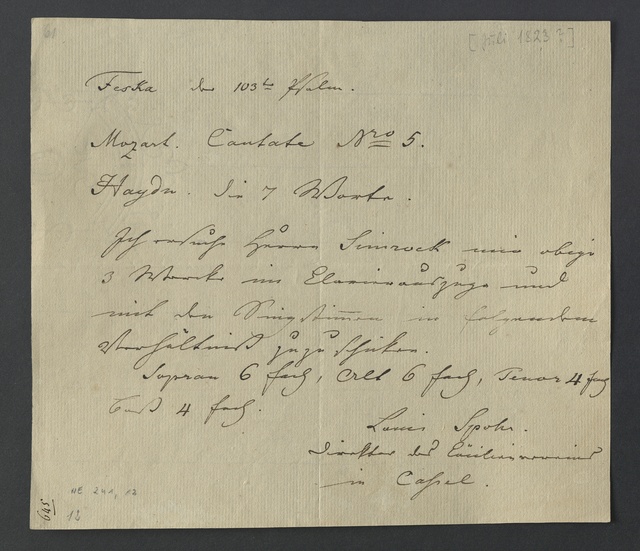 61
[Juli 1823?]
Feska der 103te Psalm.
Mozart. Cantate Nro 5.
Haydn. die 7 Worte.
Ich ersuche Herrn Simrock mir obige
3 Werke im Clavierauszuge und
mit den Singstimmen in folgendem
Verhältniß zuzuschicken.
Sopran 6 fach, Alt 6 fach, Tenor 4 fach
Baß 4 fach.
Louis Spohr.
Direktor des Cäcilienvereins
in Cassel.
NE 241, 12
645
12